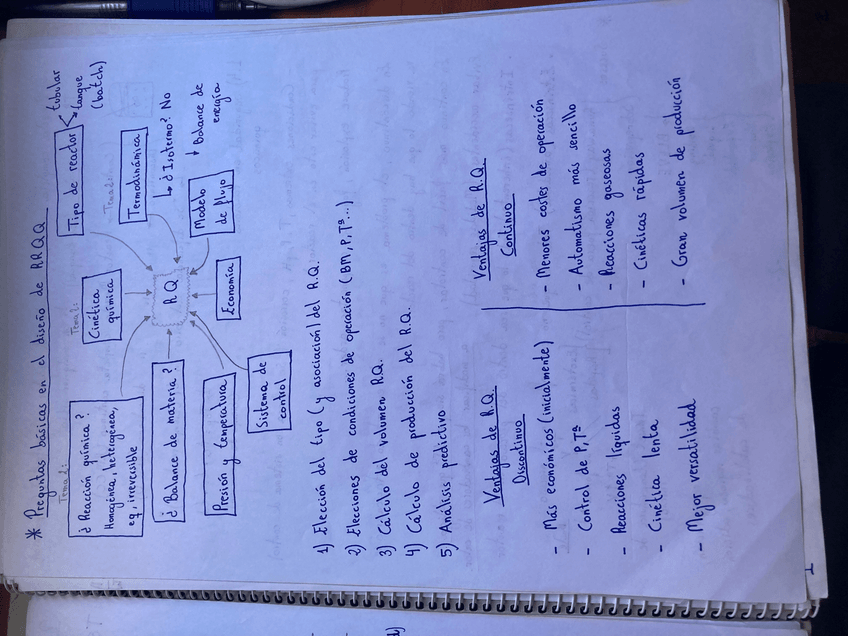 * Preguntas básicas en el diseño de RRQQ
Tema 2:
¿Reacción química?
Homogénea, heterogénea,
eq, irreversible
Tema 2:
Cinética
química
Tipo de reactor
tubular
tanque
(batch)
Termodinámica
↳ ¿Isotermo? No
↓ Balance de
energía
Modelo
de flujo
RQ
¿Balance de materia?
Presión y temperatura
Sistema de
control
Economía
1) Elección del tipo (y asociación) del R.Q.
2) Elecciones de condiciones de operación (BM, P, Tª...)
3) Cálculo del volumen RQ.
4) Cálculo de producción del R.Q.
5) Análisis predictivo
Ventajas de R.Q.
Discontinuo
- Más económicos (inicialmente)
- Control de P, Tª
- Reacciones líquidas
- Cinética lenta
- Mejor versatilidad
Ventajas de R.Q.
Continuo
- Menores costes de operación
- Automatismo más sencillo
- Reacciones gaseosas
- Cinéticas rápidas
- Gran volumen de producción
1